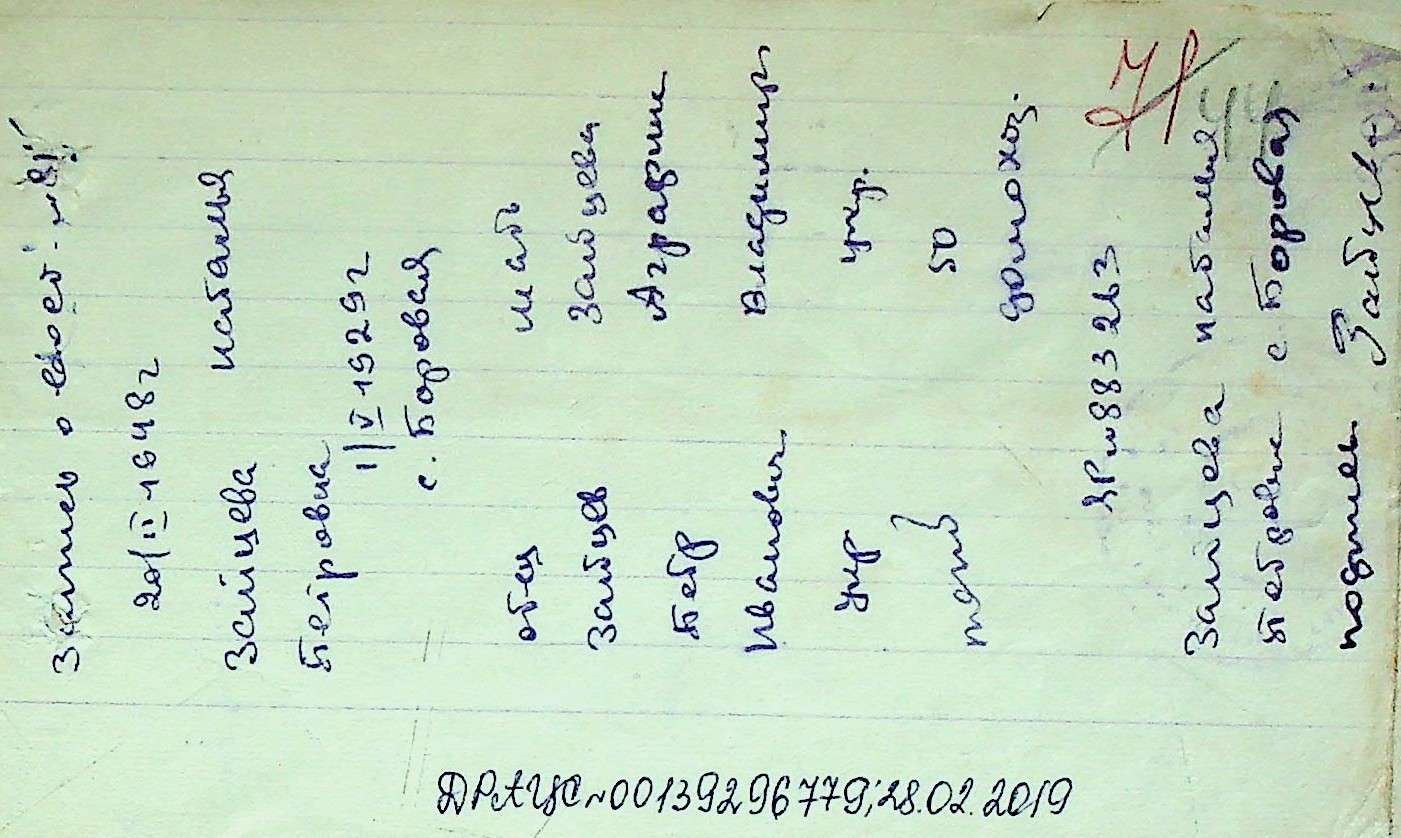 20/II 1948 г
Зайцева наталья
Петровна
1/V 1929 г
с. Боровая
отец мать
Зайцев Зайцева
Петр
Иванович Владимир.
укр укр.
50
домохоз.
№ 883263
Зайцева наталья
Петровне с. Боровая
подпись Зайцева
71
44
ДРАЦС №00139296779; 28.02.2019